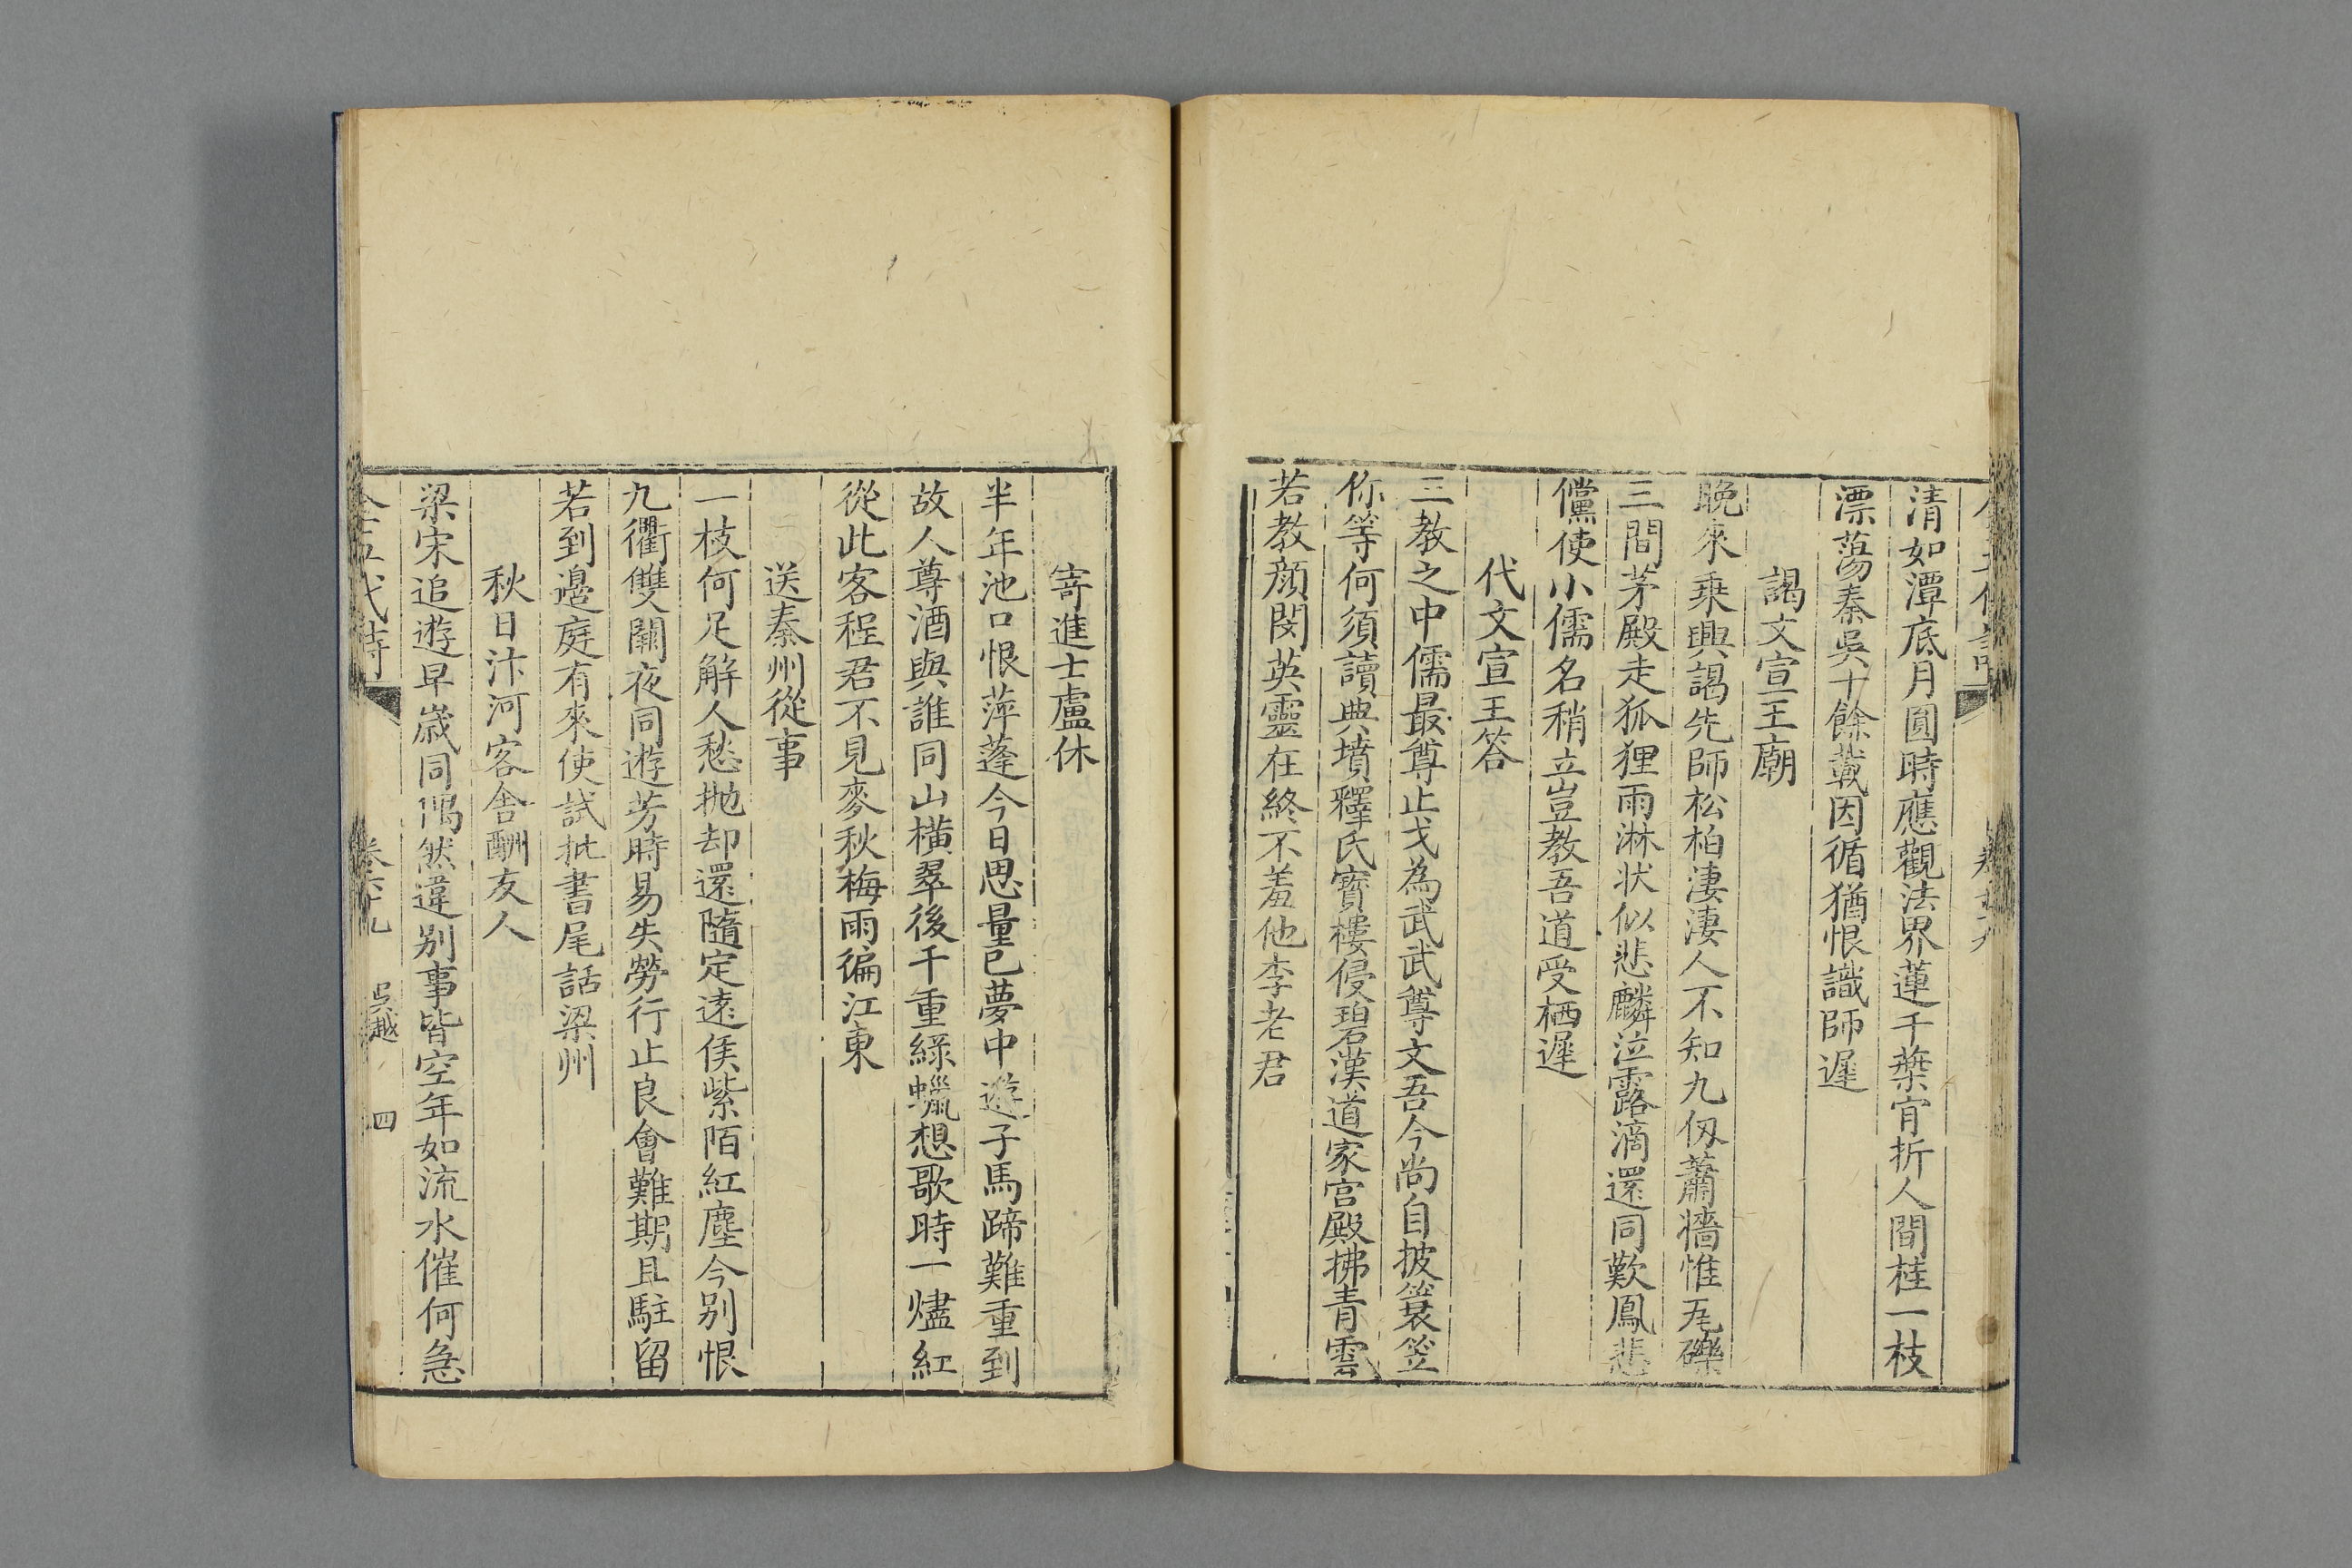 清如潭底月圓時應觀法界蓮千葉肯折人間桂一枝
漂蕩秦吳十餘載因循猶恨識師遲
謁文宣王廟
晚來乘興謁先師松柏淒淒人不知九仭蕭牆惟瓦礫
三間茅殿走狐狸雨淋状似悲麟泣露滴還同歎鳳悲
儻使小儒名稍立豈教吾道受栖遲
代文宣王答
三教之中儒最尊止戈為武武尊文吾今尚自披簑笠
你等何須讀典墳釋氏寳樓侵碧漢道家宫殿拂青雲
若教顔閔英靈在終不羞他李老君
寄進士盧休
半年池口恨萍蓬今日思量已夢中遊子馬蹄難重到
故人尊酒與誰同山横翠後千重綠蠟想歌時一燼紅
從此客程君不見麥秋梅雨徧江東
送秦州從事
一枝何足解人愁抛却還隨定遠侯紫陌紅塵今别恨
九衢雙闕夜同遊芳時易失勞行止良會難期且駐留
若到邉庭有來使試批書尾話梁州
秋日汴河客舍酬友人
梁宋追遊早歲同偶然違别事皆空年如流水催何急
全五代詩 卷六十九 吳越 四